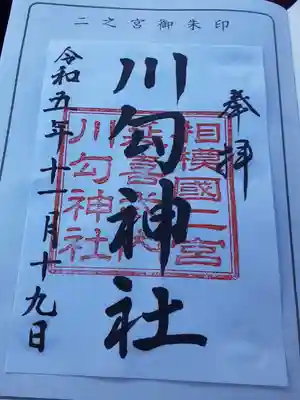 二之宮御朱印
奉拝
川勾神社
令和五年十一月十九日
相模國二宮
川勾神社